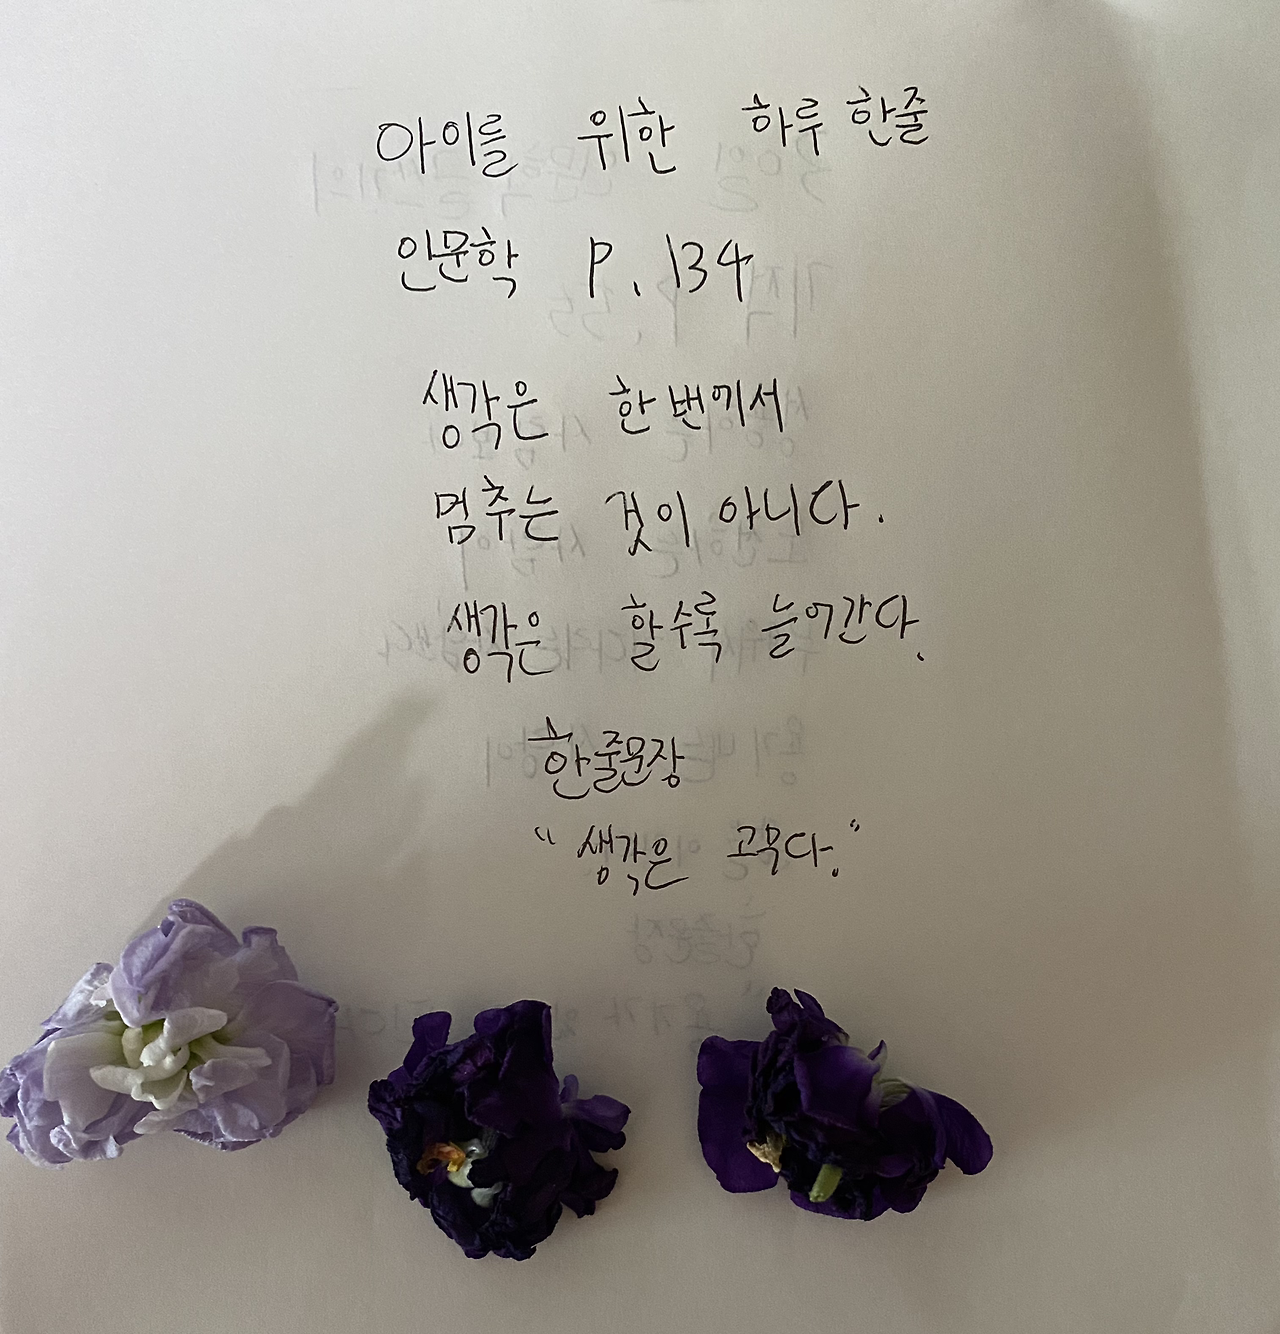 아이를 위한 하루 한줄
인문학 P. 134
생각은 한번에서
멈추는 것이 아니다.
생각은 할수록 늘어간다.
한줄문장
"생각은 고무다."